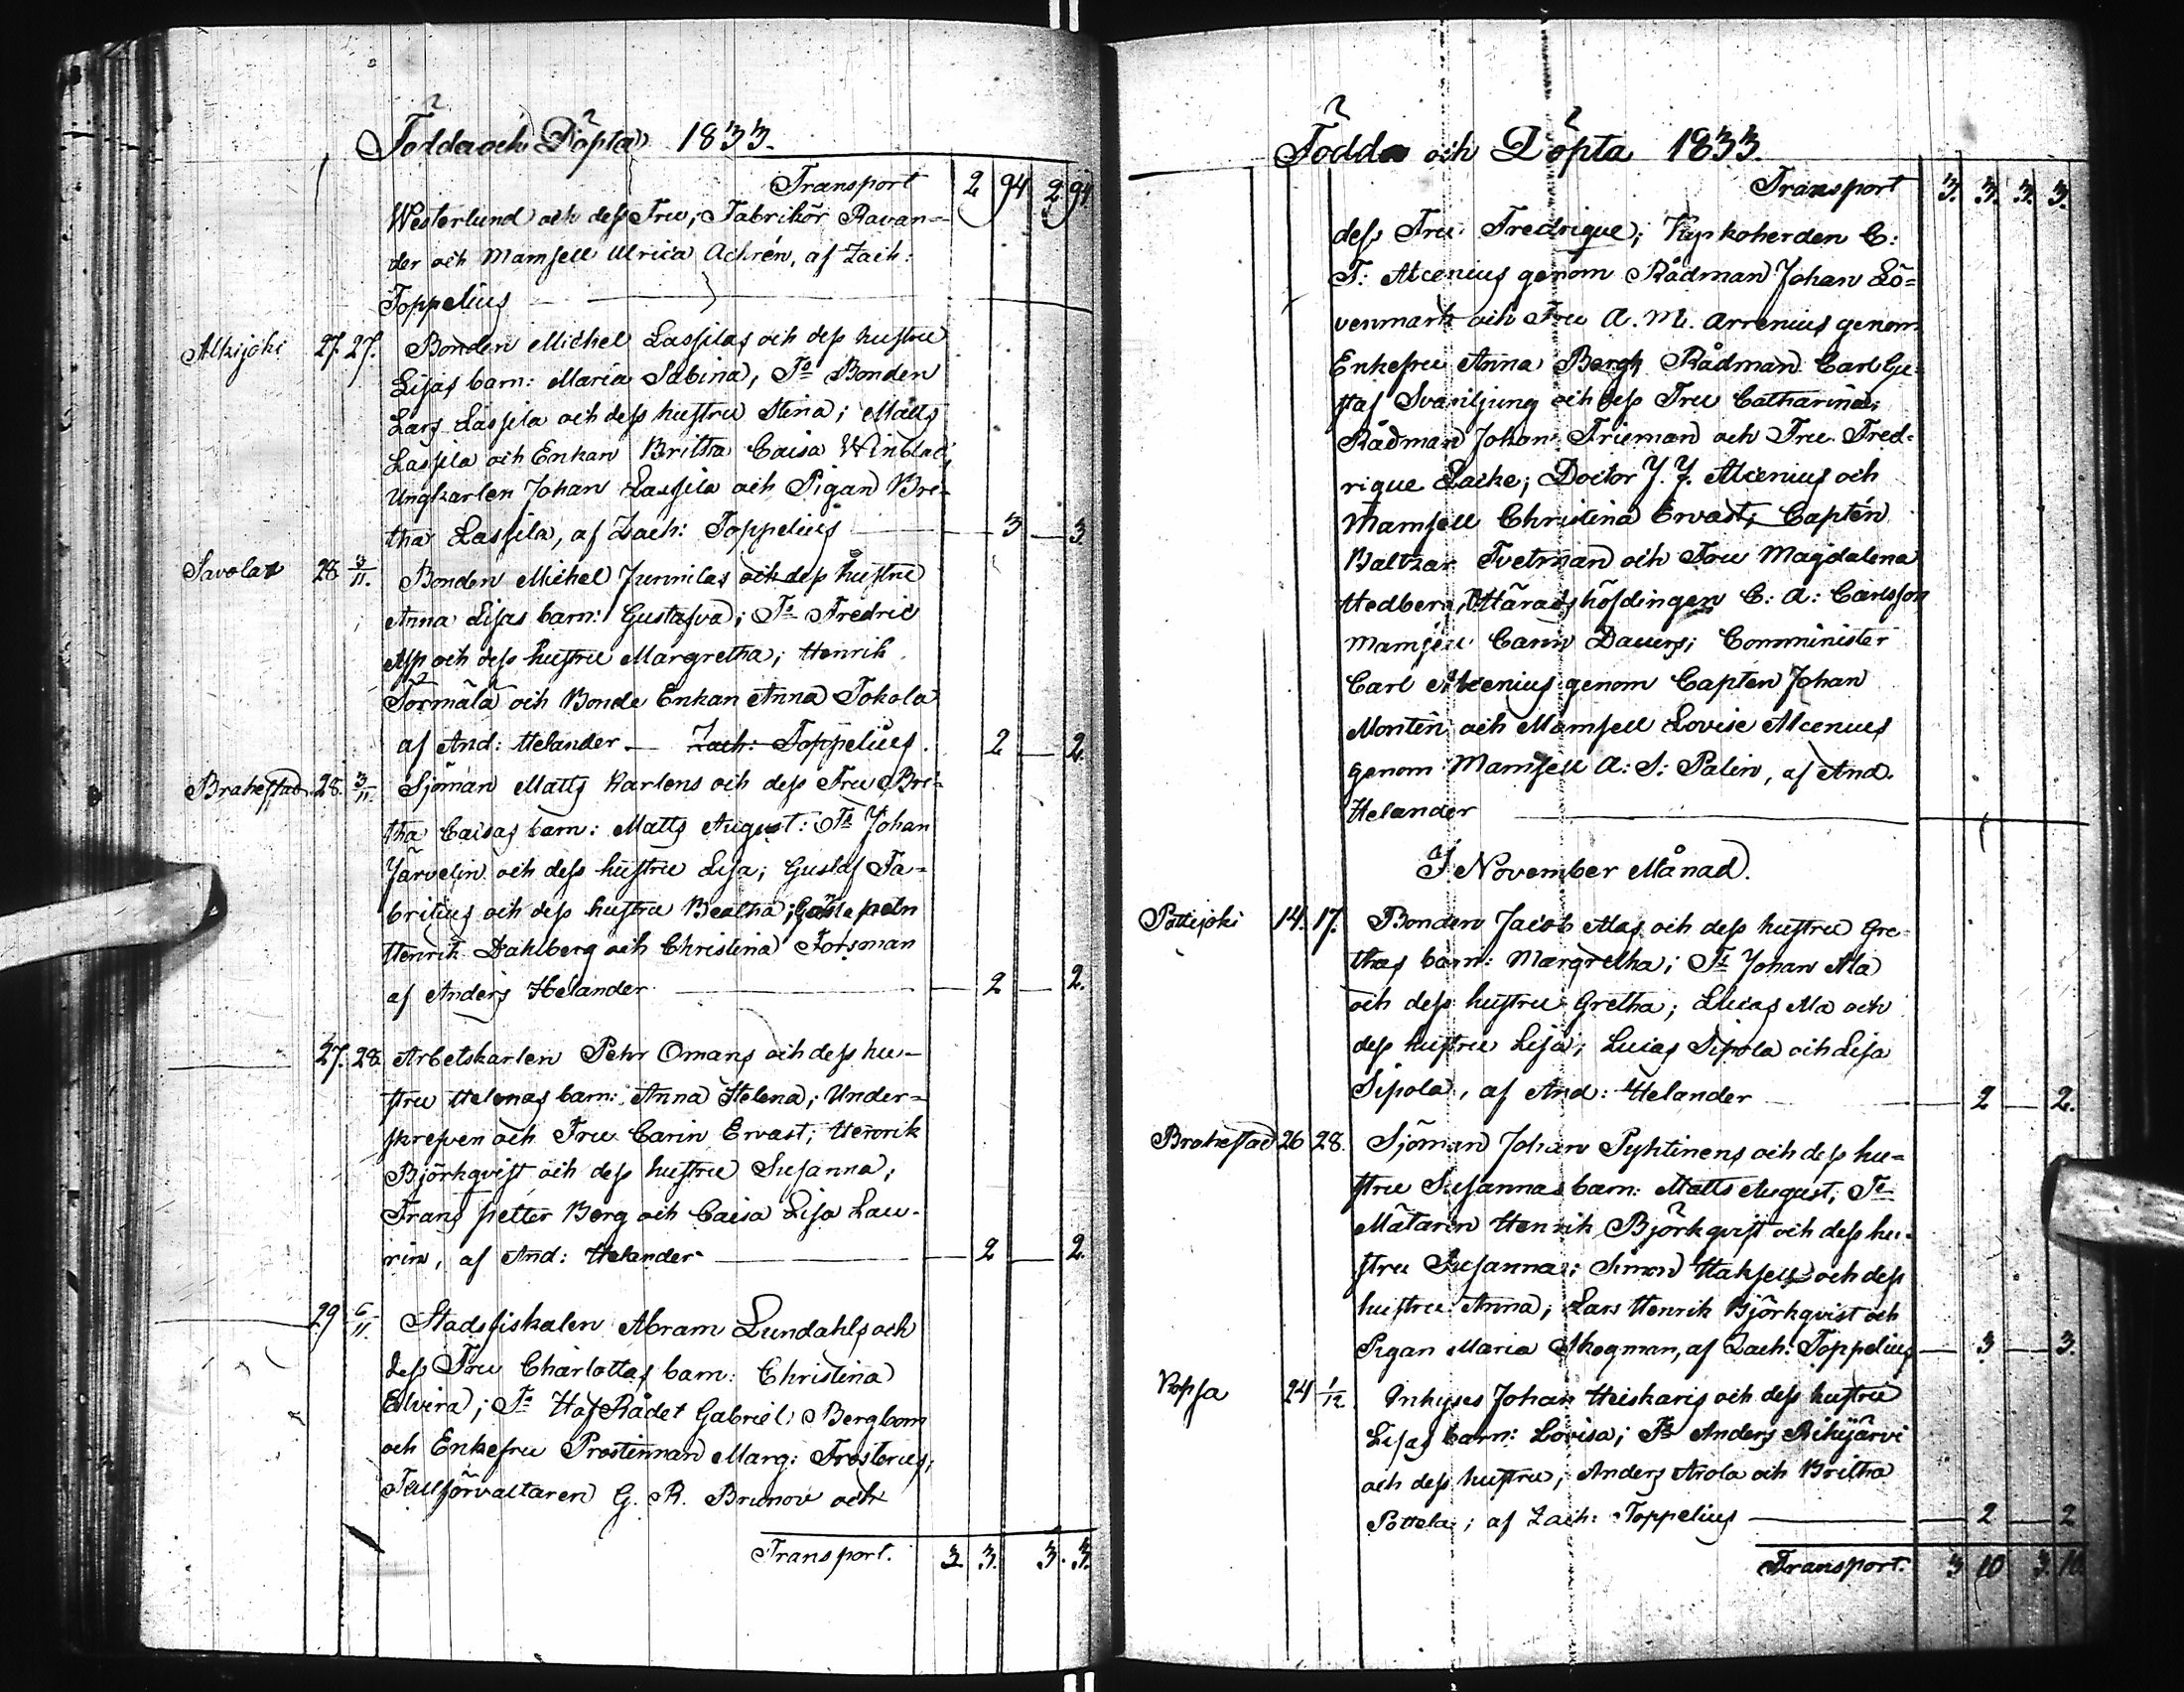 Födda och Döpta 1833.
Transport 2 94 2 94
Westerlund och dess Fru, Fabrikör Ravan-
der och Mamsell Ulrica Achrén, af Zach:
Toppelius
Alkijoki 27. 27. Bonden Michel Lassilas och dess hustru
Lisas barn: Maria Sabina, Fs Bonden
Lars Lassila och dess hustru Stina; Matts
Lassila och Enkan Britha Caisa Winblad,
Ungkarlen Johan Lassila och Pigan Bri-
tha Lassila, af Zach: Toppelius 3 3.
Savolax 28 3/11. Bonden Michel Junnilas och dess hustru
Anna Lisas barn: Gustafva; Fs Fredric
Alp och dess hustru Margretha; Henrik
Törmälä och Bonde Enkan Anna Tokola
af And: Helander — Zach: Toppelius. 2 2.
Brahestad 28. 3/11. Sjöman Matts Karlens och dess Fru Bri-
tha Caisas barn: Matts August: Fs Johan
Järvelin och dess hustru Lisa; Gustaf Fa-
britius och dess hustru Beatha; Henrik Dahlberg och Christina Forsman
af Anders Helander 2 2.
27. 28. Arbetskarlen Pehr Omans och dess hu-
stru Helenas barn: Anna Helena; Under-
skrefven och Fru Carin Ervast; Henrik
Björkqvist och dess hustru Susanna;
Frans petter Berg och Caisa Lisa Lau-
rin, af And: Helander 2 2.
29 6/11. Stadsfiskalen Abram Lundahls och
dess Fru Charlottas barn: Christina
Elvira; Fs HofRådet Gabriel Bergbom
och Enkefru Prostinnan Marg: Frosterus;
Tullförvaltaren G. R. Brunow och
Transport. 3 3. 3. 3.
Födda och Döpta 1833.
Transport 3. 3. 3. 3.
dess Fru Fredrique; Kyrkoherden C:
F: Alcenius genom Rådman Johan Lö-
venmark och Fru A. M. Arrenius genom
Enkefru Anna Bergh Rådman Carl Gu-
staf Svanljung och dess Fru Catharina;
Rådman Johan Frieman och Fru Fred-
rique Lacke; Doctor J. J. Alcenius och
Mamsell Christina Ervast, Captén
Baltzar Tvetman och Fru Magdalena
Hedberg, Häradshöfdingen C: A: Carlsson
Mamsell Carin Dauers; Comminister
Carl Alcenius genom Capten Johan
Montin och Mamsell Lovise Alcenius
genom Mamsell A: S: Palin, af And.
Helander
I November Månad.
Pattijoki 14. 17. Bonden Jacob Alas och dess hustru Gre-
thas barn: Margretha; Fs Johan Ala
och dess hustru Gretha; Lucas Ala och
dess hustru Lisa; Lucas Sipola och Lisa
Sipola, af And: Helander 2 2.
Brahestad 26 28. Sjöman Johan Pyhtinens och dess hu-
stru Susannas barn: Matts August; Fs
Mätaren Henrik Björkqvist och dess hu-
stru Susanna; Simon Haksell och dess
hustru Anna; Lars Henrik Björkqvist och
Pigan Maria Skogman, af Zach: Toppelius 3 3.
Kopsa 24 1/12. Inhyses Johan Huskaris och dess hustru
Lisas barn: Lovisa; Fs Anders Rihijärvi
och dess hustru; Anders Arola och Britha
Pottela; af Zach: Toppelius 2 2
Transport. 3 10 3. 10